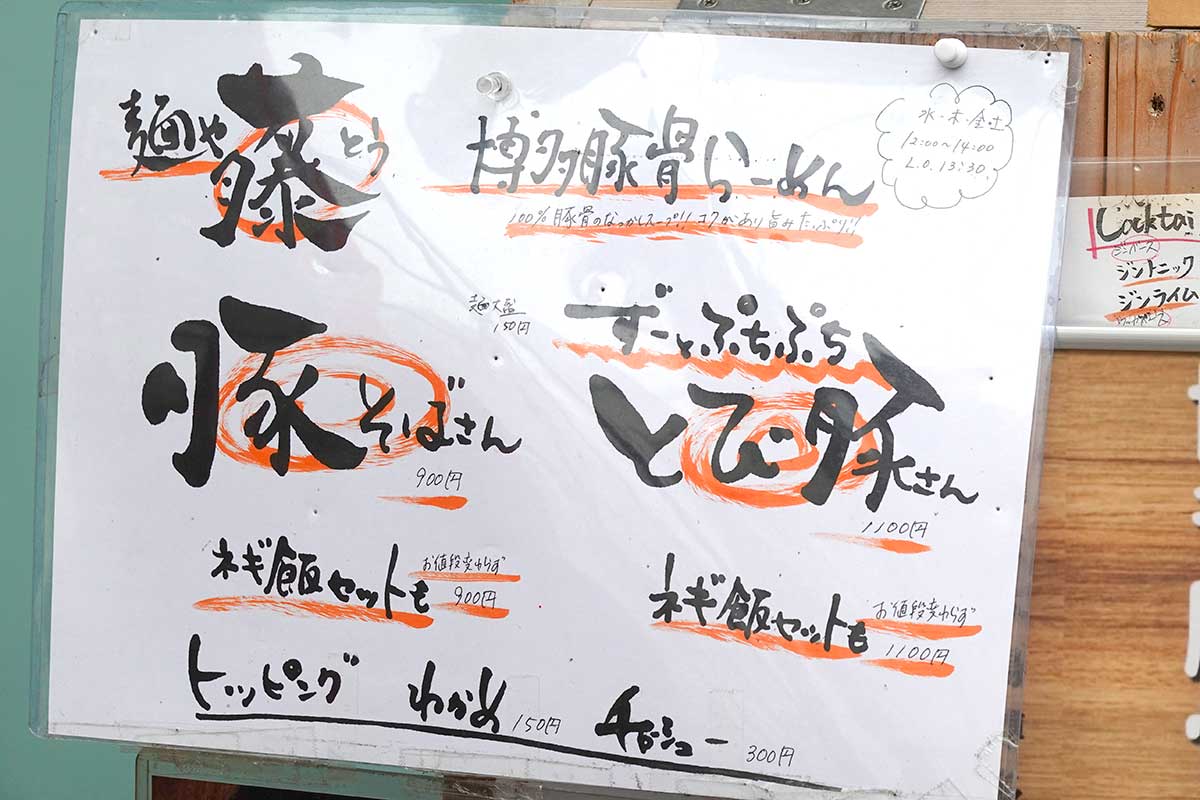 麺や藤とう
博多豚骨らーめん
100%豚骨のなつかしスープ!! コクがあり旨みたっぷり!!
水・木・金・土
12:00〜14:00
L.O. 13:30
麺大盛
150円
豚そばさん
900円
ずーとぷちぷち
とび豚さん
1100円
ネギ飯セットも
お値段変わらず
900円
ネギ飯セットも
お値段変わらず
1100円
トッピング わかめ 150円 チャーシュー 300円
Cocktai
ジンベース
ジントニック
ジンライム